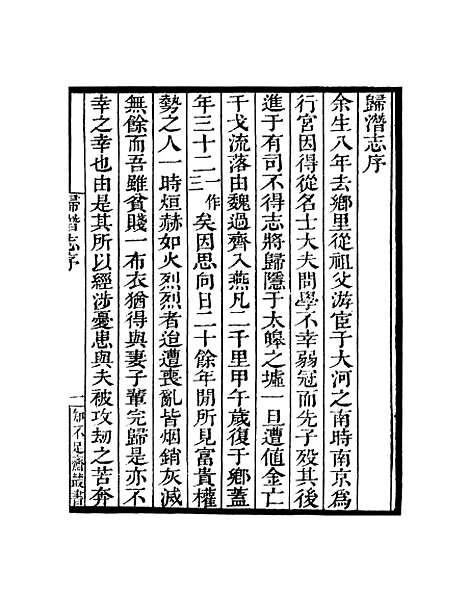 歸潛志序
余生八年去鄉里從祖父游宦于大河之南時南京爲
行宮因得從名士大夫問學不幸弱冠而先子歿其後
進于有司不得志將歸隱于太皥之墟一旦遭値金亡
干戈流落由魏過齊入燕凡二千里甲午歲復于鄉蓋
年三十二一作三矣因思向日二十餘年閒所見富貴權
勢之人一時烜赫如火烈烈者迨遭喪亂皆烟銷灰滅
無餘而吾雖貧賤一布衣猶得與妻子輩完歸是亦不
幸之幸也由是其所以經涉憂患與夫被攻劫之苦奔
歸潛志序
一
知不足齋叢書